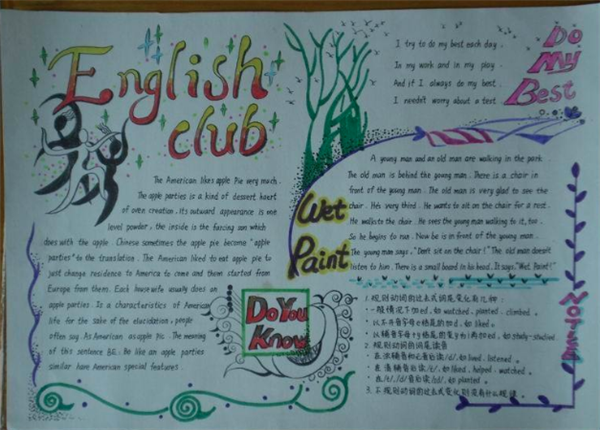 English
club
The American likes apple Pie very much.
The apple parties is a kind of dessert heart
of oven creation, its outward appearance is one
level powder, the inside is the farcing can which
does with the apple. Chinese sometimes the apple pie become "apple
parties" to the translation. The American liked to eat apple pie to
just change residence to America to come and them started from
Europe from them. Each housewife usually does an
apple parties. Is a characteristics of American
life for the sake of the elucidation, people
often say As American as apple pie. The meaning
of this sentence Bit: be like an apple parties
similar have American special features
Do You
Know
I try to do my best each day.
In my work and in my play.
And if I always do my best.
I needn't worry about a test.
Do
My
Best
Wet
Paint
A young man and an old man are walking in the park.
The old man is behind the young man. There is a chair in
front of the young man. The old man is very glad to see the
chair. He's very third. He wants to sit on the chair for a rest.
He walks to the chair. He sees the young man walking to it, too.
So he begins to run. Now he is in front of the young man.
The young man says, "Don't sit on the chair!" The old man doesn't
listen to him. There is a small board in his head. It says, "Wet Paint!"
1. 规则动词的过去式词尾变化有几种:
一般情况下加ed, 如 watched, planted, climbed。
以不发音字母e结尾的加d, 如 liked。
以辅音字母+y结尾的变y为i再加ed, 如, study-studied.
2. 规则动词的词尾读音
在浊辅音和元音后读/d/, 如 lived, listened。
在清辅音后读/t/, 如 liked, helped, watched。
在/t/, /d/音后读/id/, 如 planted。
3. 不规则动词的过去式变化则没有什么规律。